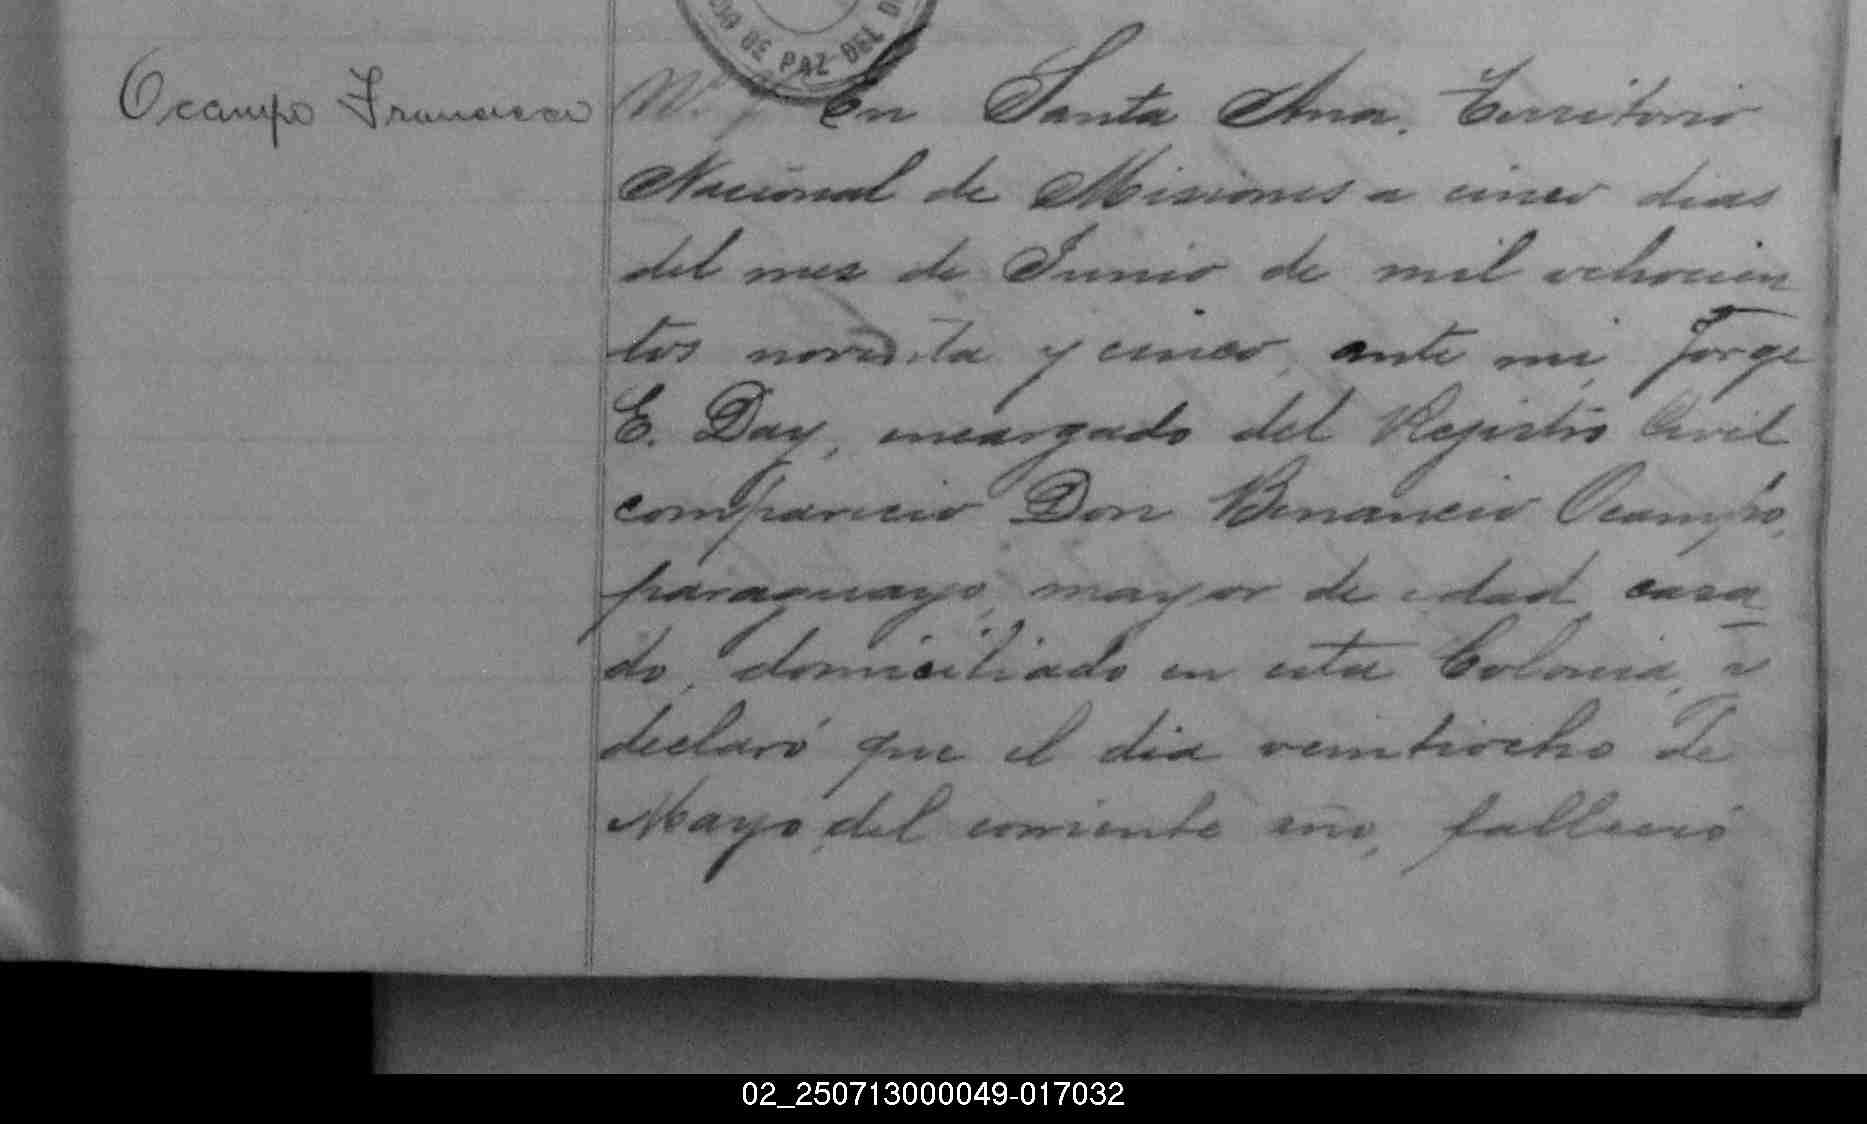 DE PAZ DEL
Ocampo Francisco
Nº En Santa Ana, Territorio
Nacional de Misiones a cinco dias
del mes de Junio de mil ochocien
tos noventa y cinco, ante mi, Jorge
E. Day, encargado del Registro Civil
comparecio Don Benancio Ocampo,
paraguayo, mayor de edad, casa
do, domiciliado en esta Colonia, y
declaró que el dia veintiocho de
Mayo del corriente año, falleció
02_250713000049-017032